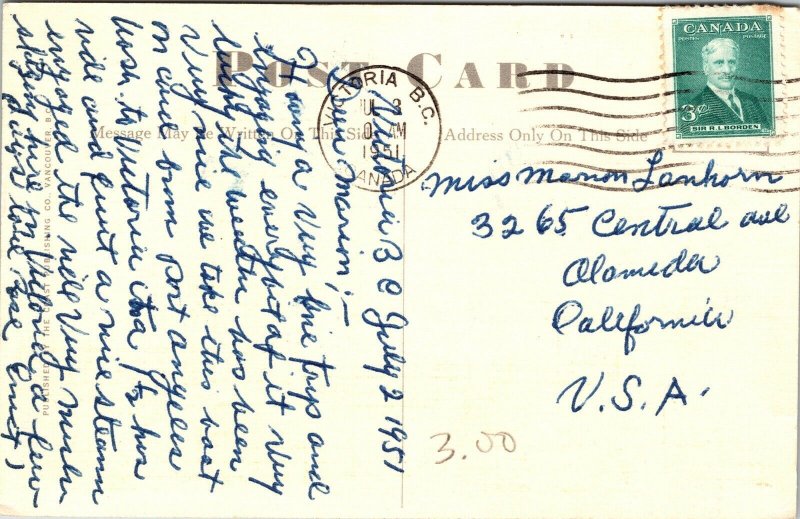 POST CARD
Message May Be Written On This Side
Address Only On This Side
VICTORIA B.C.
JUL 3
AM
1951
CANADA
CANADA
POSTES POSTAGE
3¢
SIR R.L. BORDEN
Victoria B C July 2 1951
Dear Marion:—
Having a very fine trip and
enjoying every bit of it very
much the weather has been
very nice we take this boat
on and from Port Angeles
Wash. to Victoria its a 1½ hour
ride and quite a nice steam
enjoyed the ride very much
stopping here in Victoria a few
days love
PUBLISHED BY THE COAST PUBLISHING CO. VANCOUVER, B.C.
Miss Marion Lanhorn
3265 Central ave
Alameda
California
U.S.A.
3.00